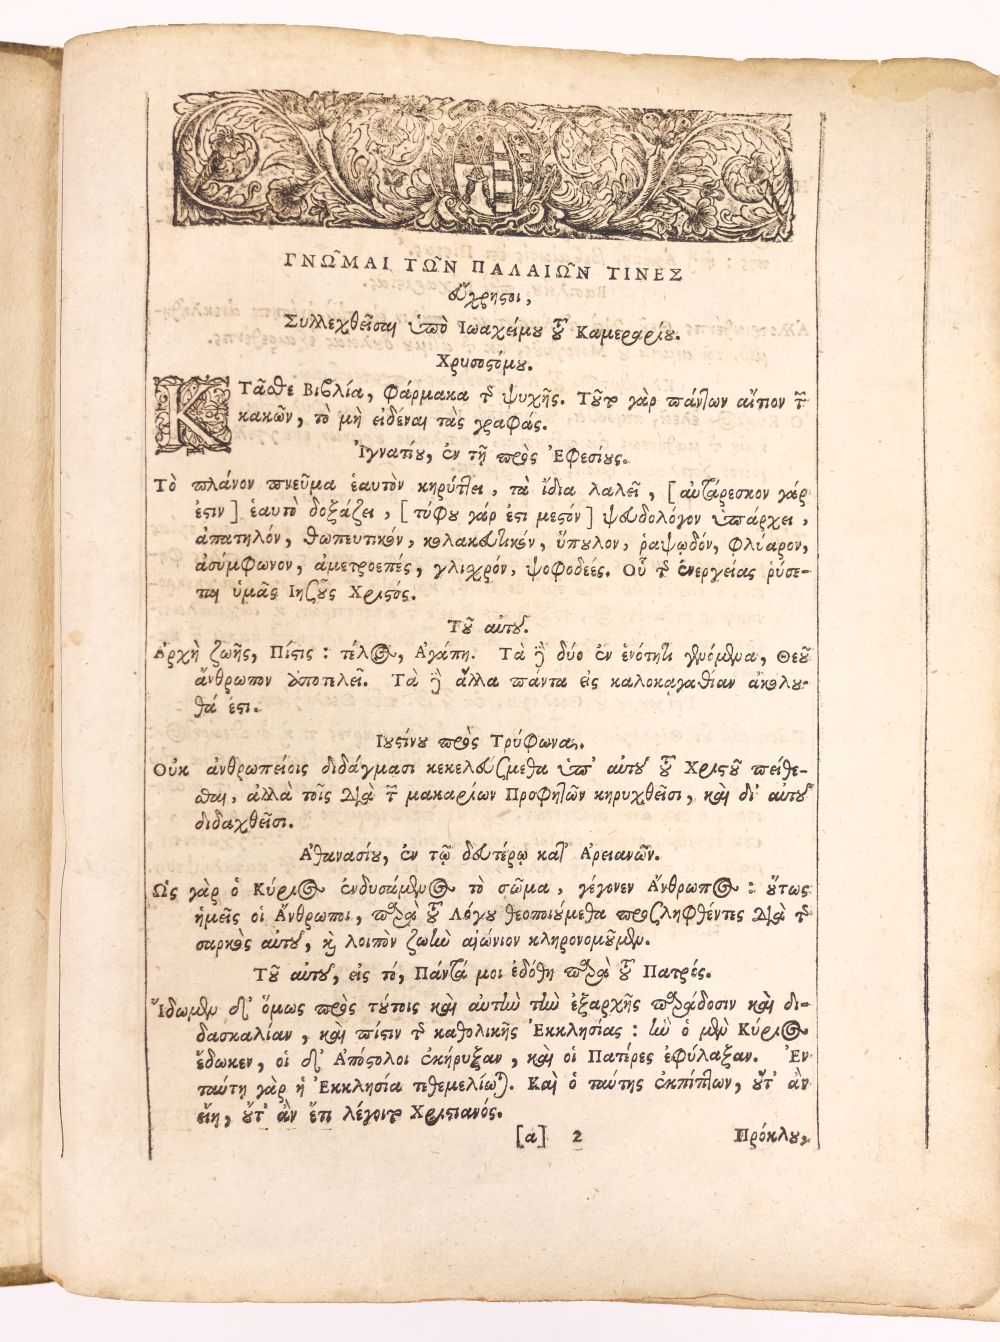 ΓΝΩ͂ΜΑΙ ΤΩ͂Ν ΠΑΛΑΙΩ͂Ν ΤΙΝΕΣ
εὔχρηστοι,
Συλλεχθεῖσαι ὑπὸ Ιωαχείμου τοῦ Καμεραρίου.
Χρυσοστόμου.
ΚΤᾶσθε Βιβλία, φάρμακα τῆς ψυχῆς. Τοῦτο γὰρ πάντων αἴτιον τῶν
κακῶν, τὸ μὴ εἰδέναι τὰς γραφάς.
Ἰγνατίου, ἐν τῇ πρὸς Ἐφεσίους.
Τὸ πλάνον πνεῦμα ἑαυτὸν κηρύττει, τὰ ἴδια λαλεῖ, [αὐτάρεσκον γάρ
ἐστιν] ἑαυτὸ δοξάζει, [τύφου γάρ ἐστι μεστόν] ψευδολόγον ὑπάρχει,
ἀπατηλόν, θωπευτικόν, κολακευτικόν, ὕπουλον, ῥαψῳδόν, φλύαρον,
ἀσύμφωνον, ἀμετροεπές, γλιχρόν, ψοφοδεές. Οὗ τῆς ἐνεργείας ῥύσε-
ται ὑμᾶς Ιησοῦς Χριστός.
Τοῦ αὐτοῦ.
Αρχὴ ζωῆς, Πίστις: τέλος, Αγάπη. Τὰ δὲ δύο ἐν ἑνότητι γενόμενα, Θεοῦ
ἄνθρωπον ἀποτελεῖ. Τὰ δὲ ἄλλα πάντα εἰς καλοκᾳγαθίαν ἀκόλου-
θά ἐστι.
Ιουστίνου πρὸς Τρύφωνα.
Οὐκ ἀνθρωπείοις διδάγμασι κεκελεύσμεθα ὑπ' αὐτοῦ τοῦ Χριστοῦ πείθε-
σθαι, ἀλλὰ τοῖς διὰ τῶν μακαρίων Προφητῶν κηρυχθεῖσι, καὶ δι' αὐτοῦ
διδαχθεῖσι.
Αθανασίου, ἐν τῷ δευτέρῳ κατ' Αρειανῶν.
Ως γὰρ ὁ Κύριος ἐνδυσάμενος τὸ σῶμα, γέγονεν Ἄνθρωπος: οὕτως
ἡμεῖς οἱ Ἄνθρωποι, παρὰ τοῦ Λόγου θεοποιούμεθα προσληφθέντες διὰ τῆς
σαρκὸς αὐτοῦ, καὶ λοιπὸν ζωὴν αἰώνιον κληρονομοῦμεν.
Τοῦ αὐτοῦ, εἰς τό, Πάντα μοι ἐδόθη παρὰ τοῦ Πατρός.
Ἴδωμεν δ' ὅμως πρὸς τούτοις καὶ αὐτὴν τὴν ἐξαρχῆς παράδοσιν καὶ δι-
δασκαλίαν, καὶ πίστιν τῆς καθολικῆς Ἐκκλησίας: ἣν ὁ μὲν Κύριος
ἔδωκεν, οἱ δ' Απόστολοι ἐκήρυξαν, καὶ οἱ Πατέρες ἐφύλαξαν. Ἐν
ταύτῃ γὰρ ἡ Ἐκκλησία τεθεμελίωται. Καὶ ὁ ταύτης ἐκπίπτων, οὔτ' ἂν
εἴη, οὔτ' ἂν ἔτι λέγοιτο Χριστιανός.
[a] 2 Πρόκλου,